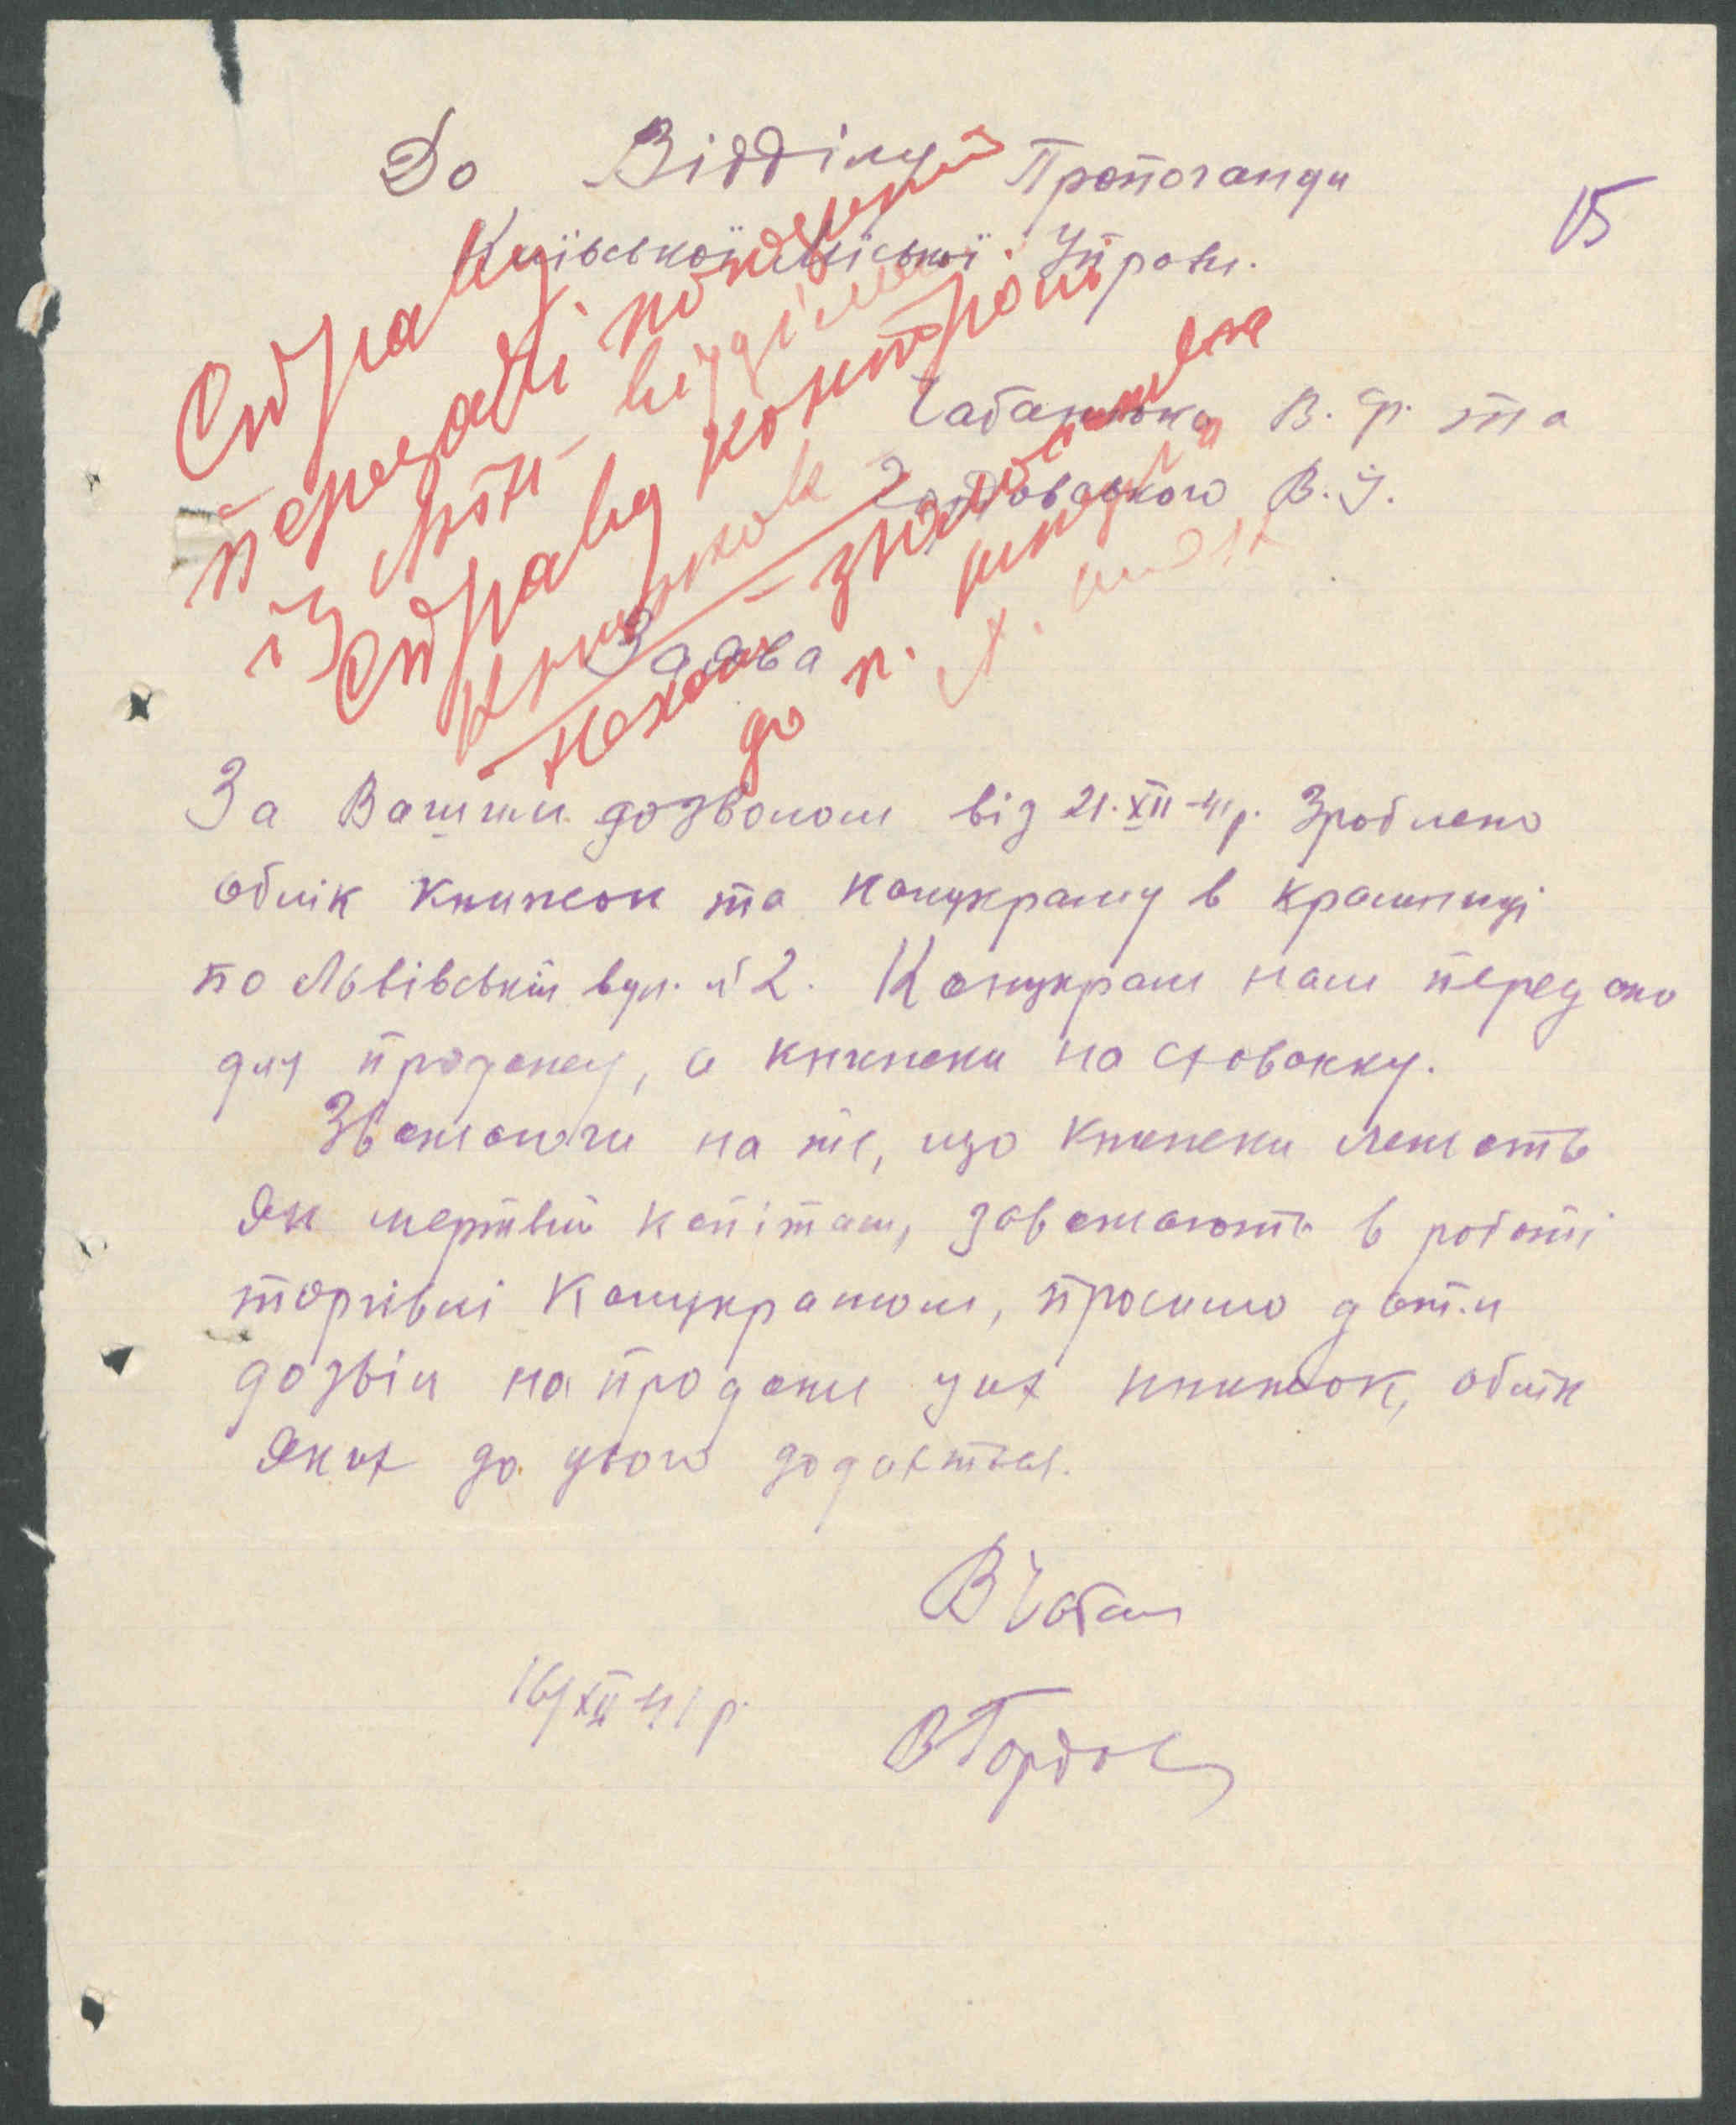 До Відділу Пропоганди
15
Київської Міської Управи.
Чабаненка В. Ф. та
Гордовського В. У.
Заява
Справу
передачі
із
відділом
Справу контролю
книжок
Нехай
до п.
За Вашим дозволом від 21.XII-41р. Зроблено
облік книжок та канцкраму в крамниці
по Львівській вул. № 2. Канцкрам нам передано
для продажу, а книжки на схованку.
Зважаючи на те, що книжки лежать
як мертвий капітал, заважають в роботі
торгівлі канцкрамом, просимо дати
дозвіл на продаж цих книжок, облік
яких до цього додається.
В Чабан
16/XII-41р.
В Гордов